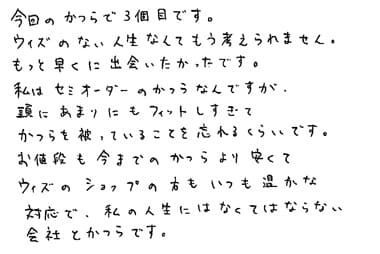 今回のかつらで3個目です。
ウィズのない人生なんてもう考えられません。
もっと早くに出会いたかったです。
私はセミオーダーのかつらなんですが、
頭にあまりにもフィットしすぎて
かつらを被っていることを忘れるくらいです。
お値段も今までのかつらより安くて
ウィズのショップの方もいつも温かな
対応で、私の人生にはなくてはならない
会社とかつらです。